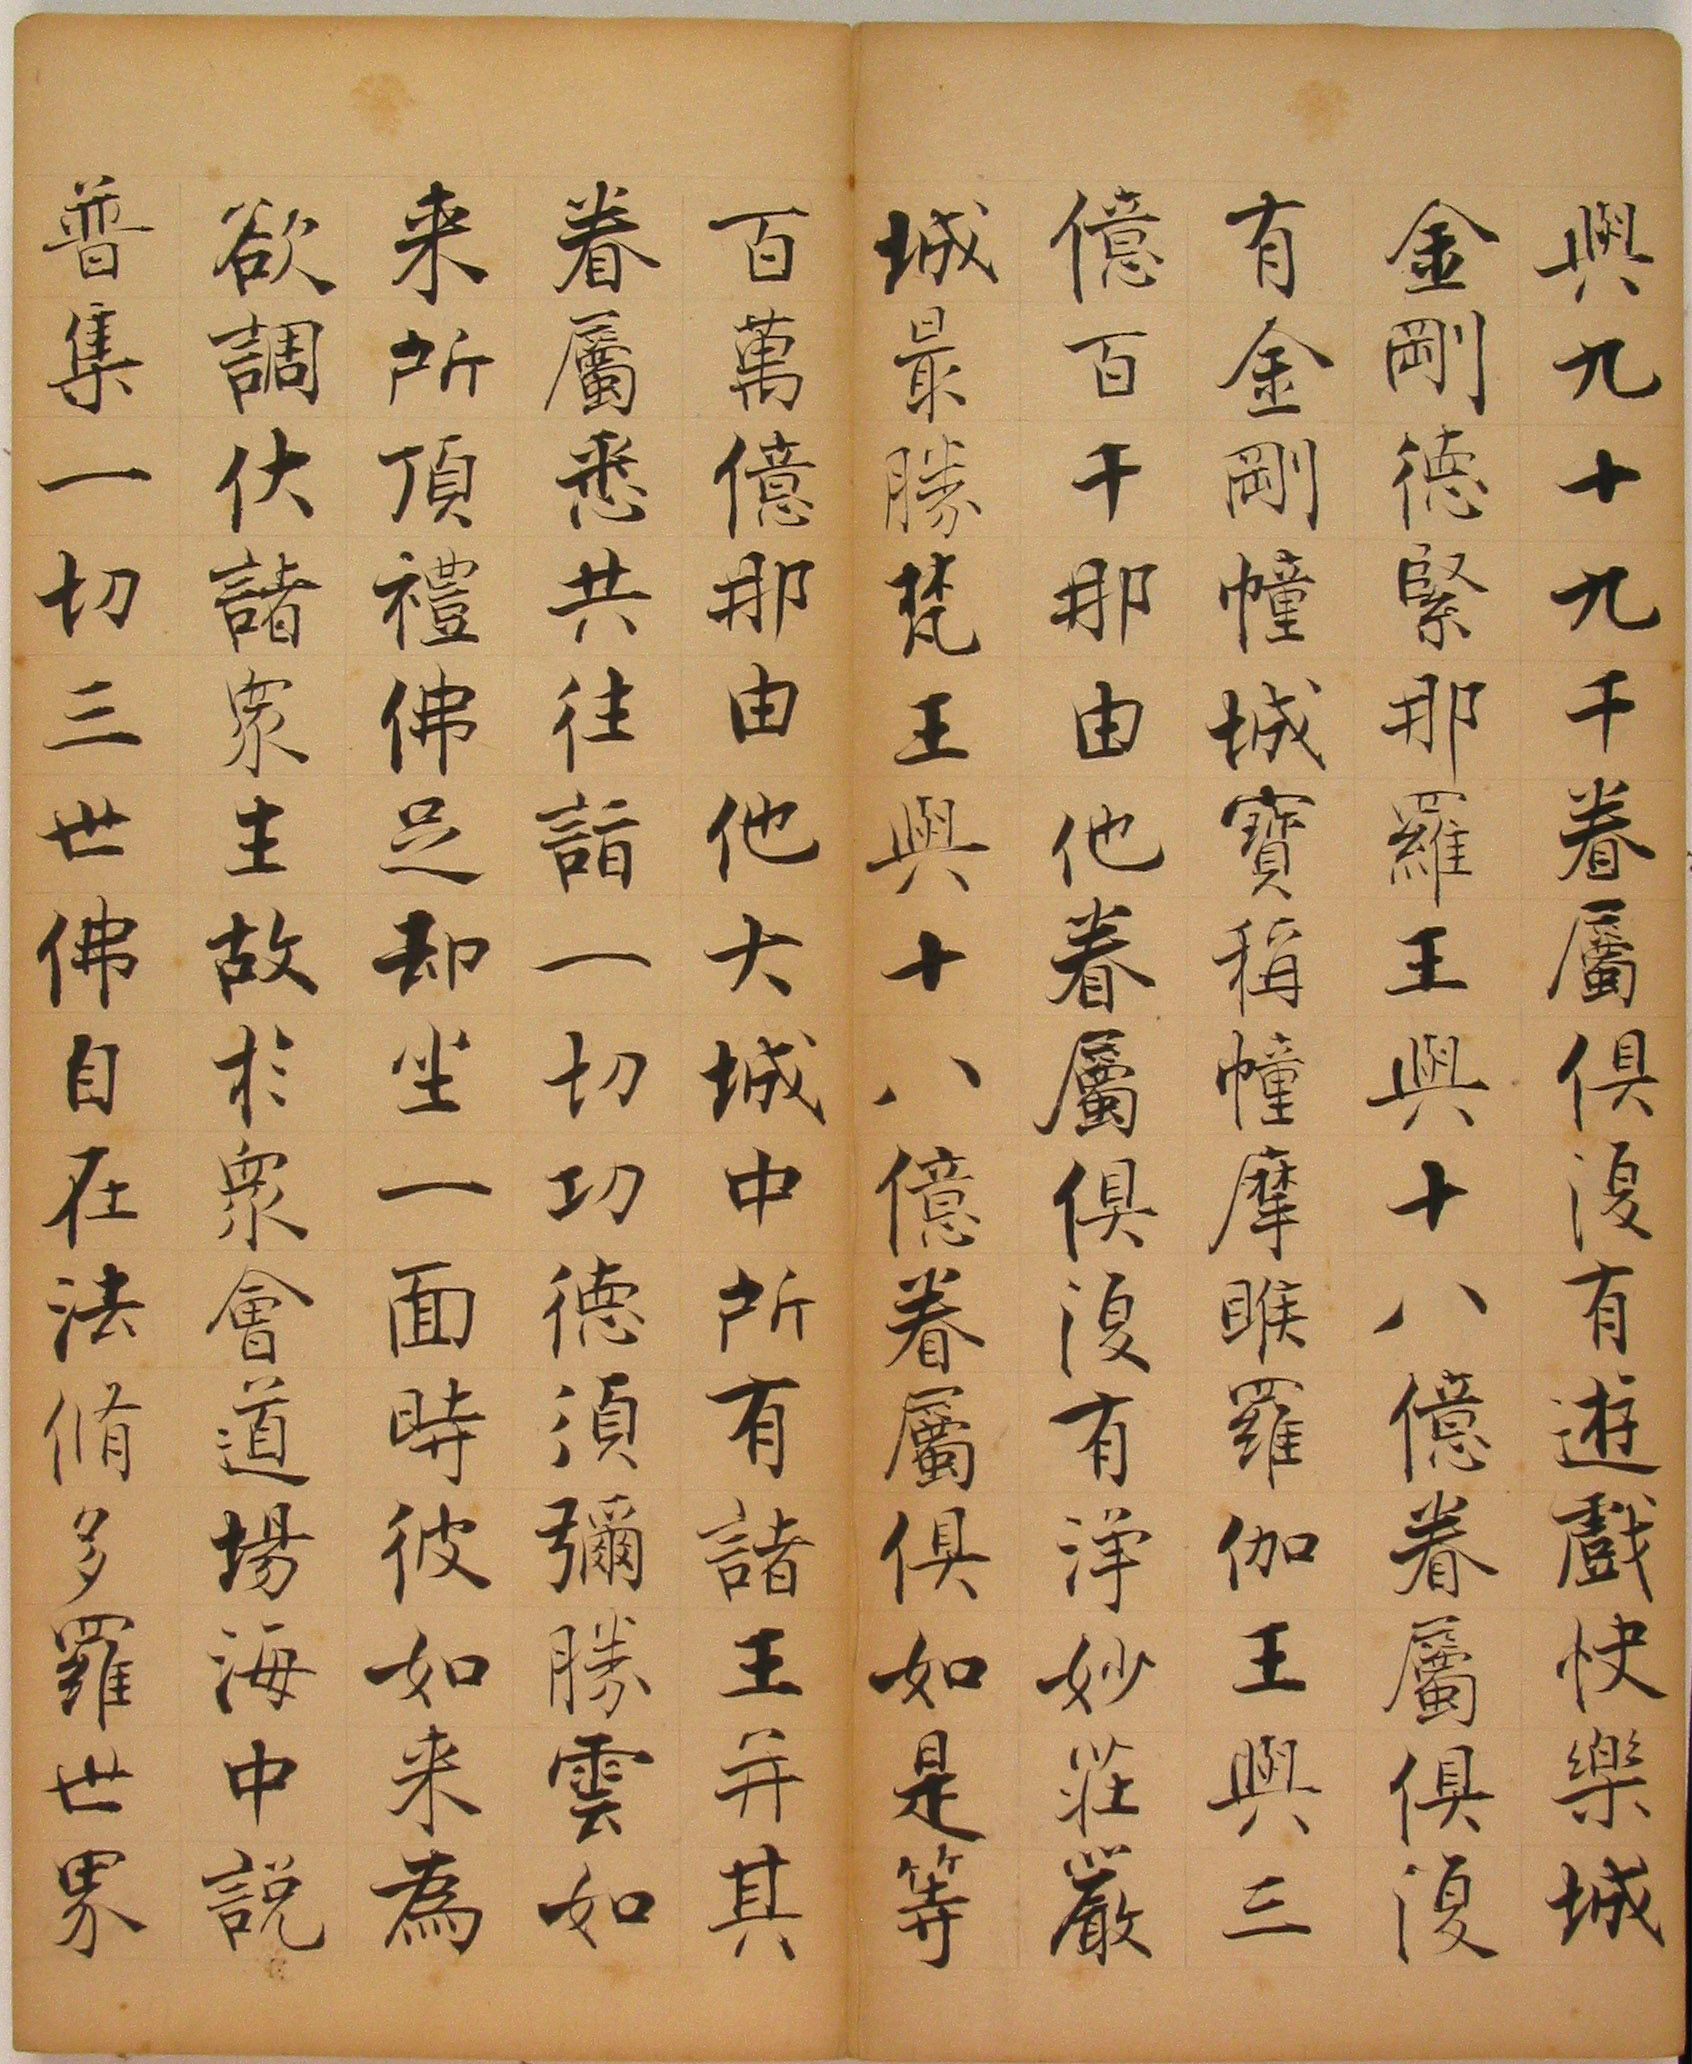 與九十九千眷屬俱復有遊戲快樂城
金剛德緊那羅王與十八億眷屬俱復
有金剛幢城寶稱幢摩睺羅伽王與三
億百千那由他眷屬俱復有淨妙莊嚴
城最勝梵王與十八億眷屬俱如是等
百萬億那由他大城中所有諸王并其
眷屬悉共往詣一切功德須彌勝雲如
来所頂禮佛足却坐一面時彼如来為
欲調伏諸眾生故於眾會道場海中說
普集一切三世佛自在法脩多羅世界